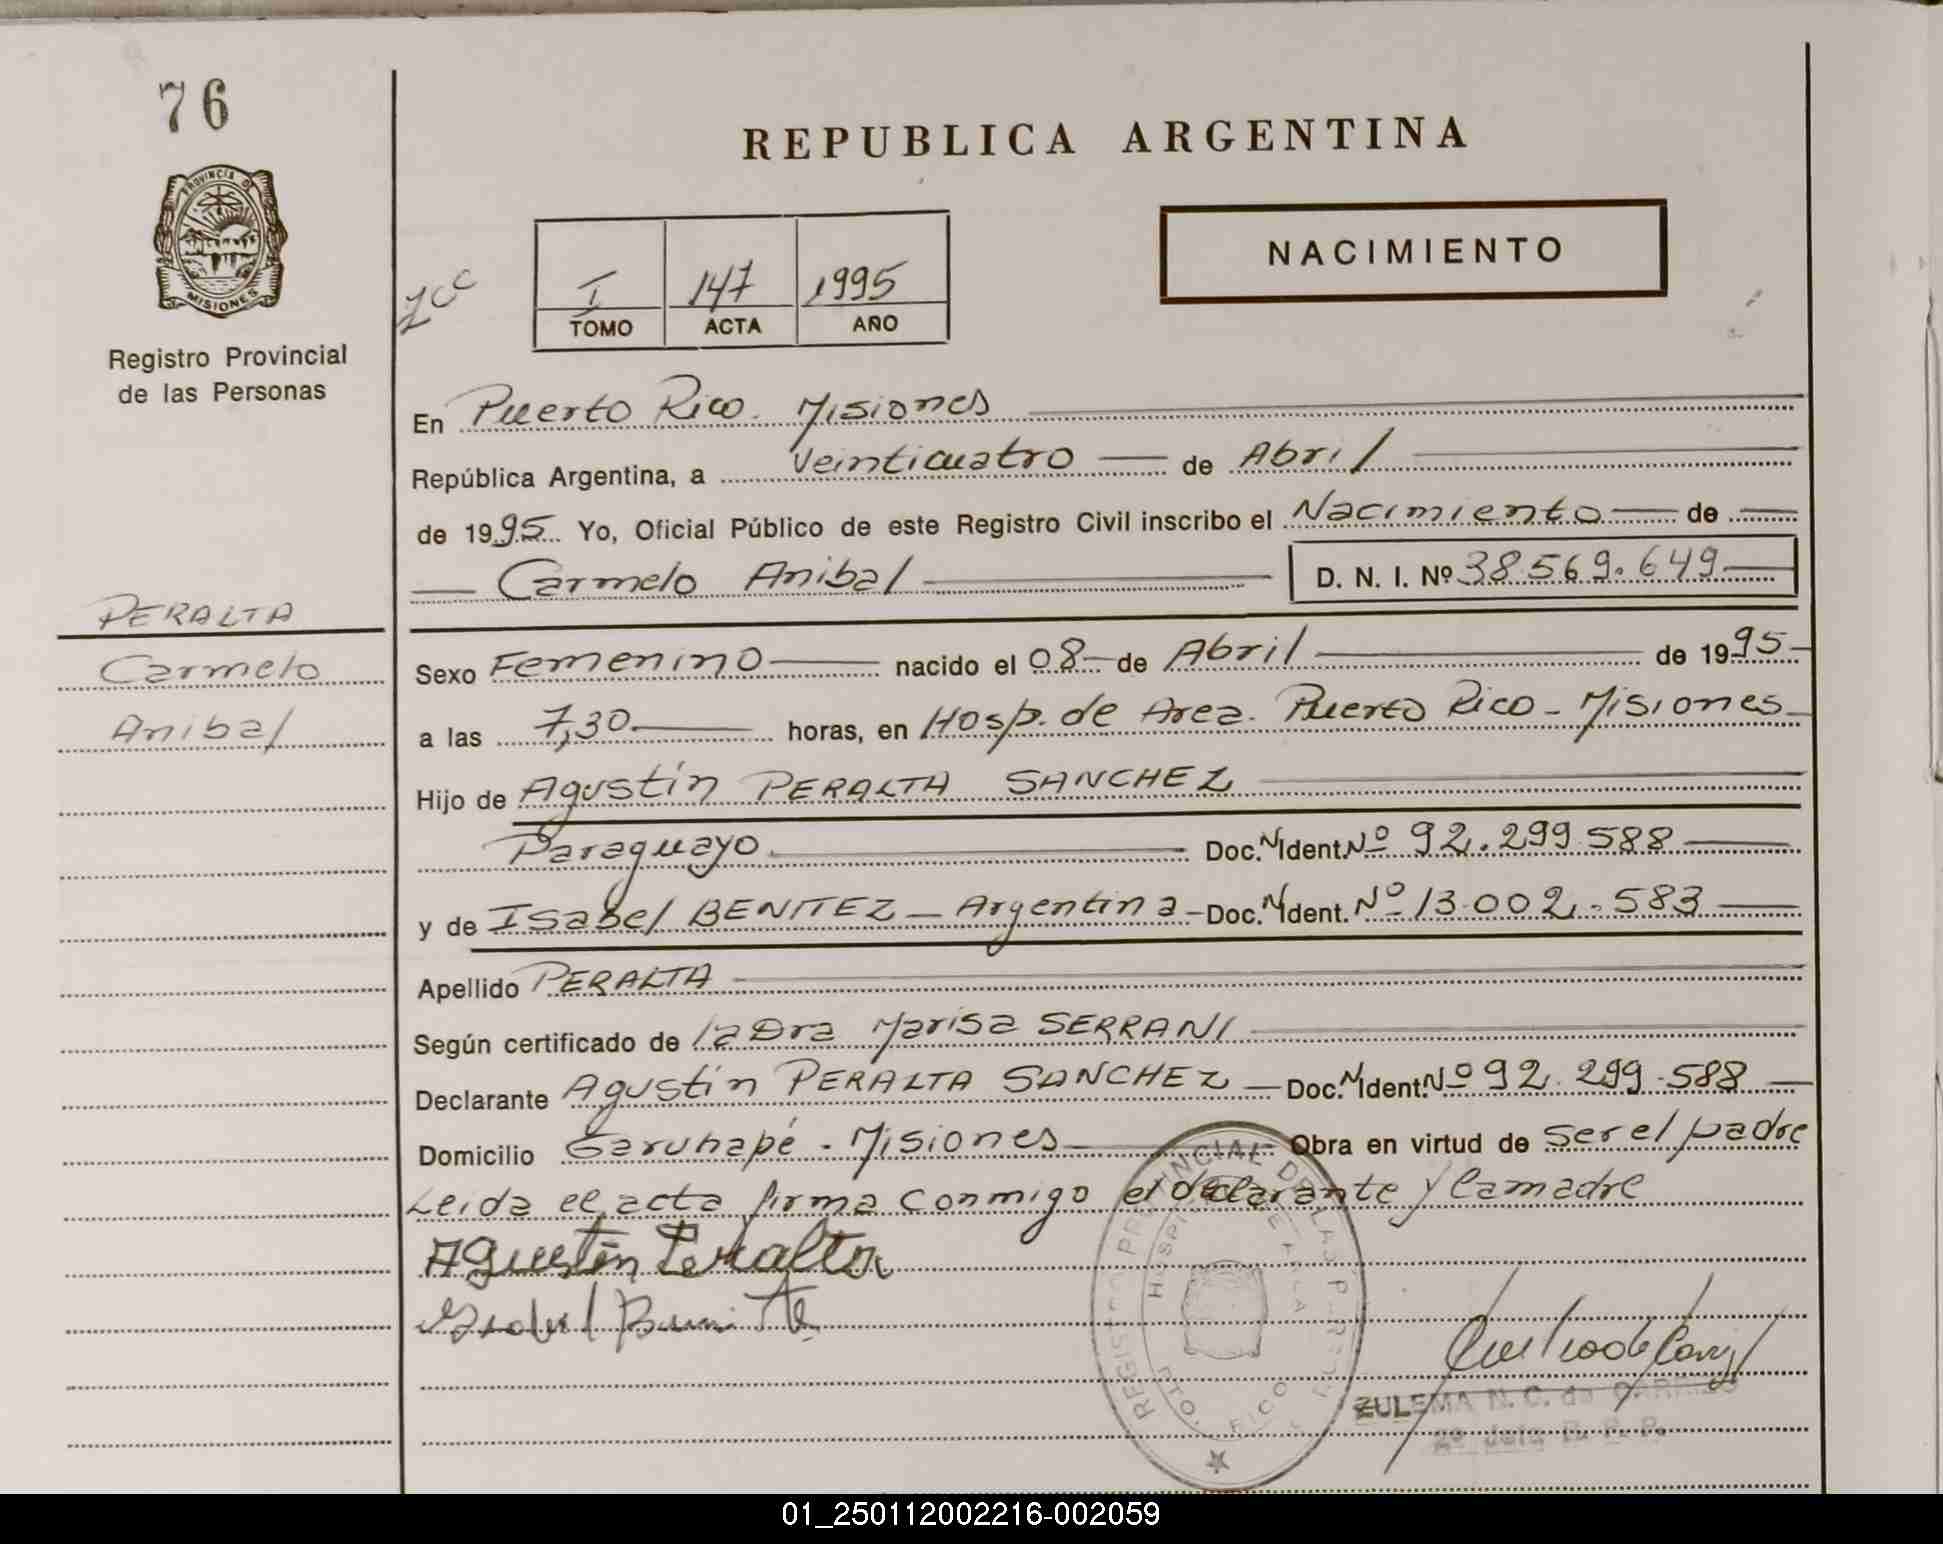 76
PROVINCIA DE
MISIONES
Registro Provincial
de las Personas
REPUBLICA ARGENTINA
NACIMIENTO
I 147 1995
TOMO ACTA AÑO
En Puerto Rico. Misiones
República Argentina, a Veinticuatro de Abril
de 1995. Yo, Oficial Público de este Registro Civil inscribo el Nacimiento de
Carmelo Anibal D. N. I. Nº 38.569.649
PERALTA
Carmelo
Anibal
Sexo Femenino nacido el 08 de Abril de 1995
a las 7,30 horas, en Hosp. de Area. Puerto Rico - Misiones
Hijo de Agustín PERALTA SANCHEZ
Paraguayo Doc. N Ident. Nº 92.299.588
y de Isabel BENITEZ - Argentina - Doc. N Ident. Nº 13.002.583
Apellido PERALTA
Según certificado de la Dra Marisa SERRANI
Declarante Agustín PERALTA SANCHEZ - Doc. N Ident. Nº 92.299.588
Domicilio Garuhapé - Misiones Obra en virtud de ser el padre
Leida el acta firma conmigo el declarante y la madre
Agustin Peralta
REGISTRO PROVINCIAL DE LAS
ZULEMA N. C. de
01_250112002216-002059